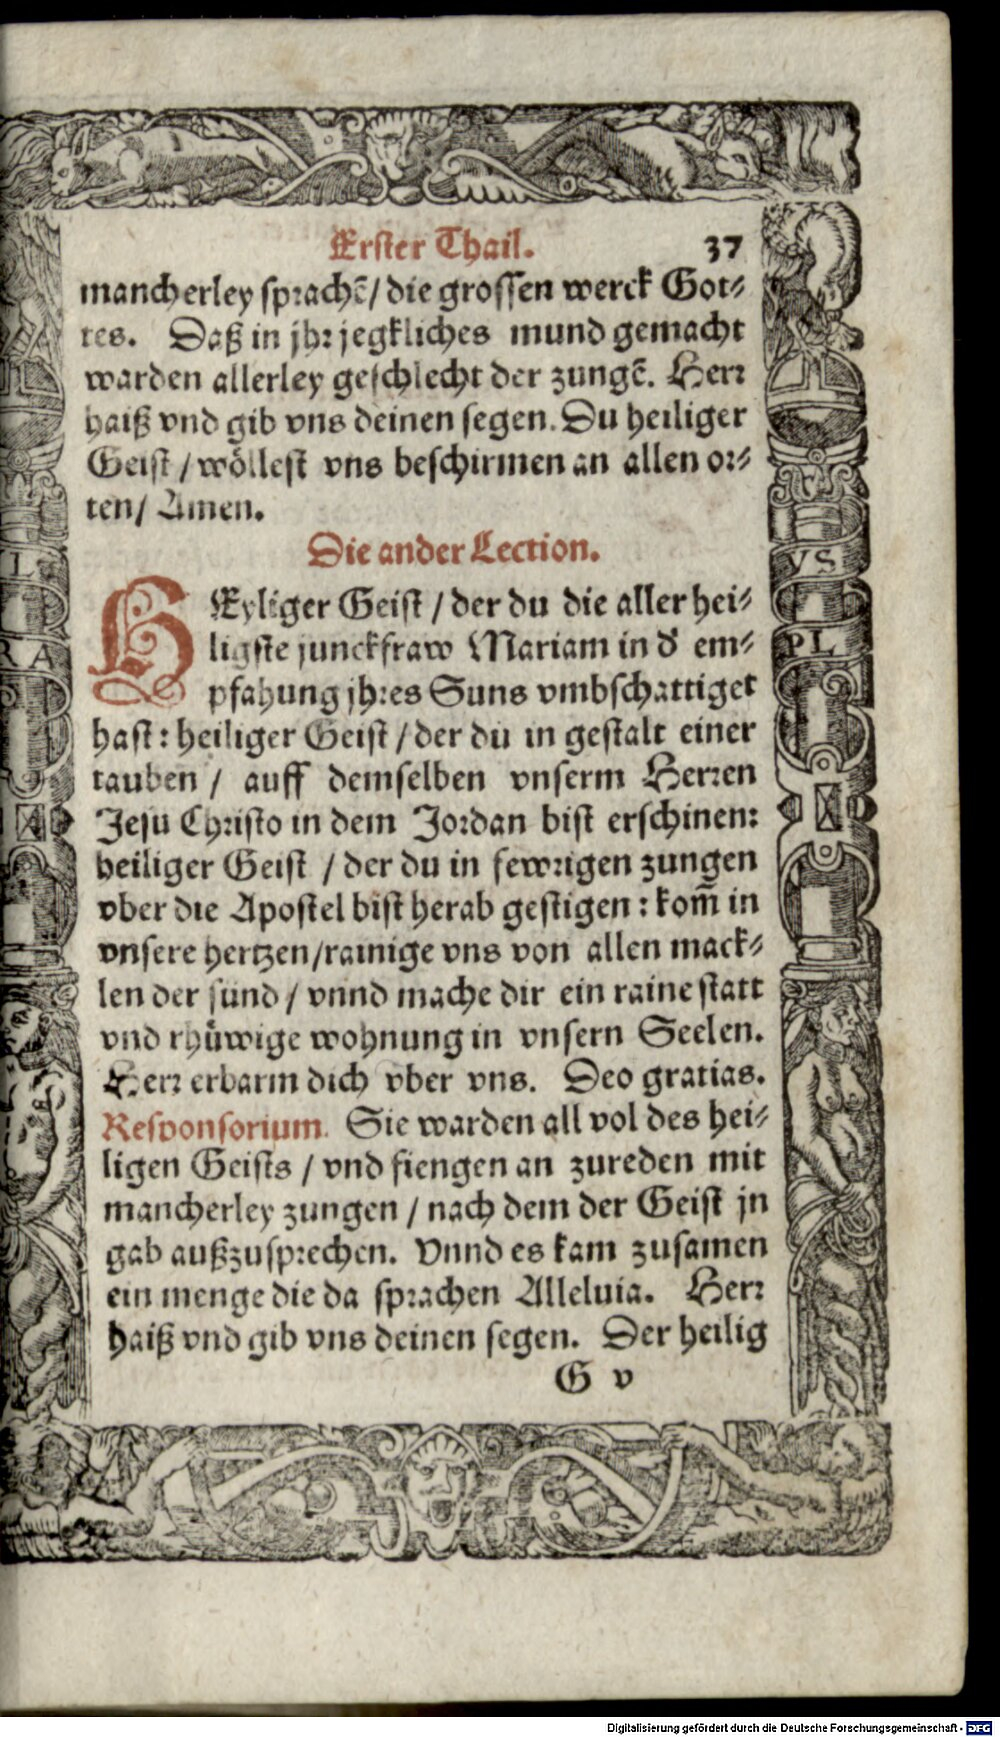 Erster Thail. 37
mancherley sprachē/ die grossen werck Got⸗
tes. Daß in jhr jegkliches mund gemacht
warden allerley geschlecht der zungē. Herr
haiß vnd gib vns deinen segen. Du heiliger
Geist / wöllest vns beschirmen an allen or⸗
ten/ Amen.
Die ander Lection.
HEyliger Geist / der du die aller hei⸗
ligste junckfraw Mariam in d' em⸗
pfahung jhres Suns vmbschattiget
hast: heiliger Geist / der du in gestalt einer
tauben / auff demselben vnserm Herren
Jesu Christo in dem Jordan bist erschinen:
heiliger Geist / der du in fewrigen zungen
vber die Apostel bist herab gestigen: kom̄ in
vnsere hertzen/rainige vns von allen mack⸗
len der sünd / vnnd mache dir ein raine statt
vnd rhüwige wohnung in vnsern Seelen.
Herr erbarm dich vber vns. Deo gratias.
Responsorium. Sie warden all vol des hei⸗
ligen Geists / vnd fiengen an zureden mit
mancherley zungen / nach dem der Geist jn
gab außzusprechen. Vnnd es kam zusamen
ein menge die da sprachen Alleluia. Herr
haiß vnd gib vns deinen segen. Der heilig
G v
L
RA
VS
PL
Digitalisierung gefördert durch die Deutsche Forschungsgemeinschaft - DFG